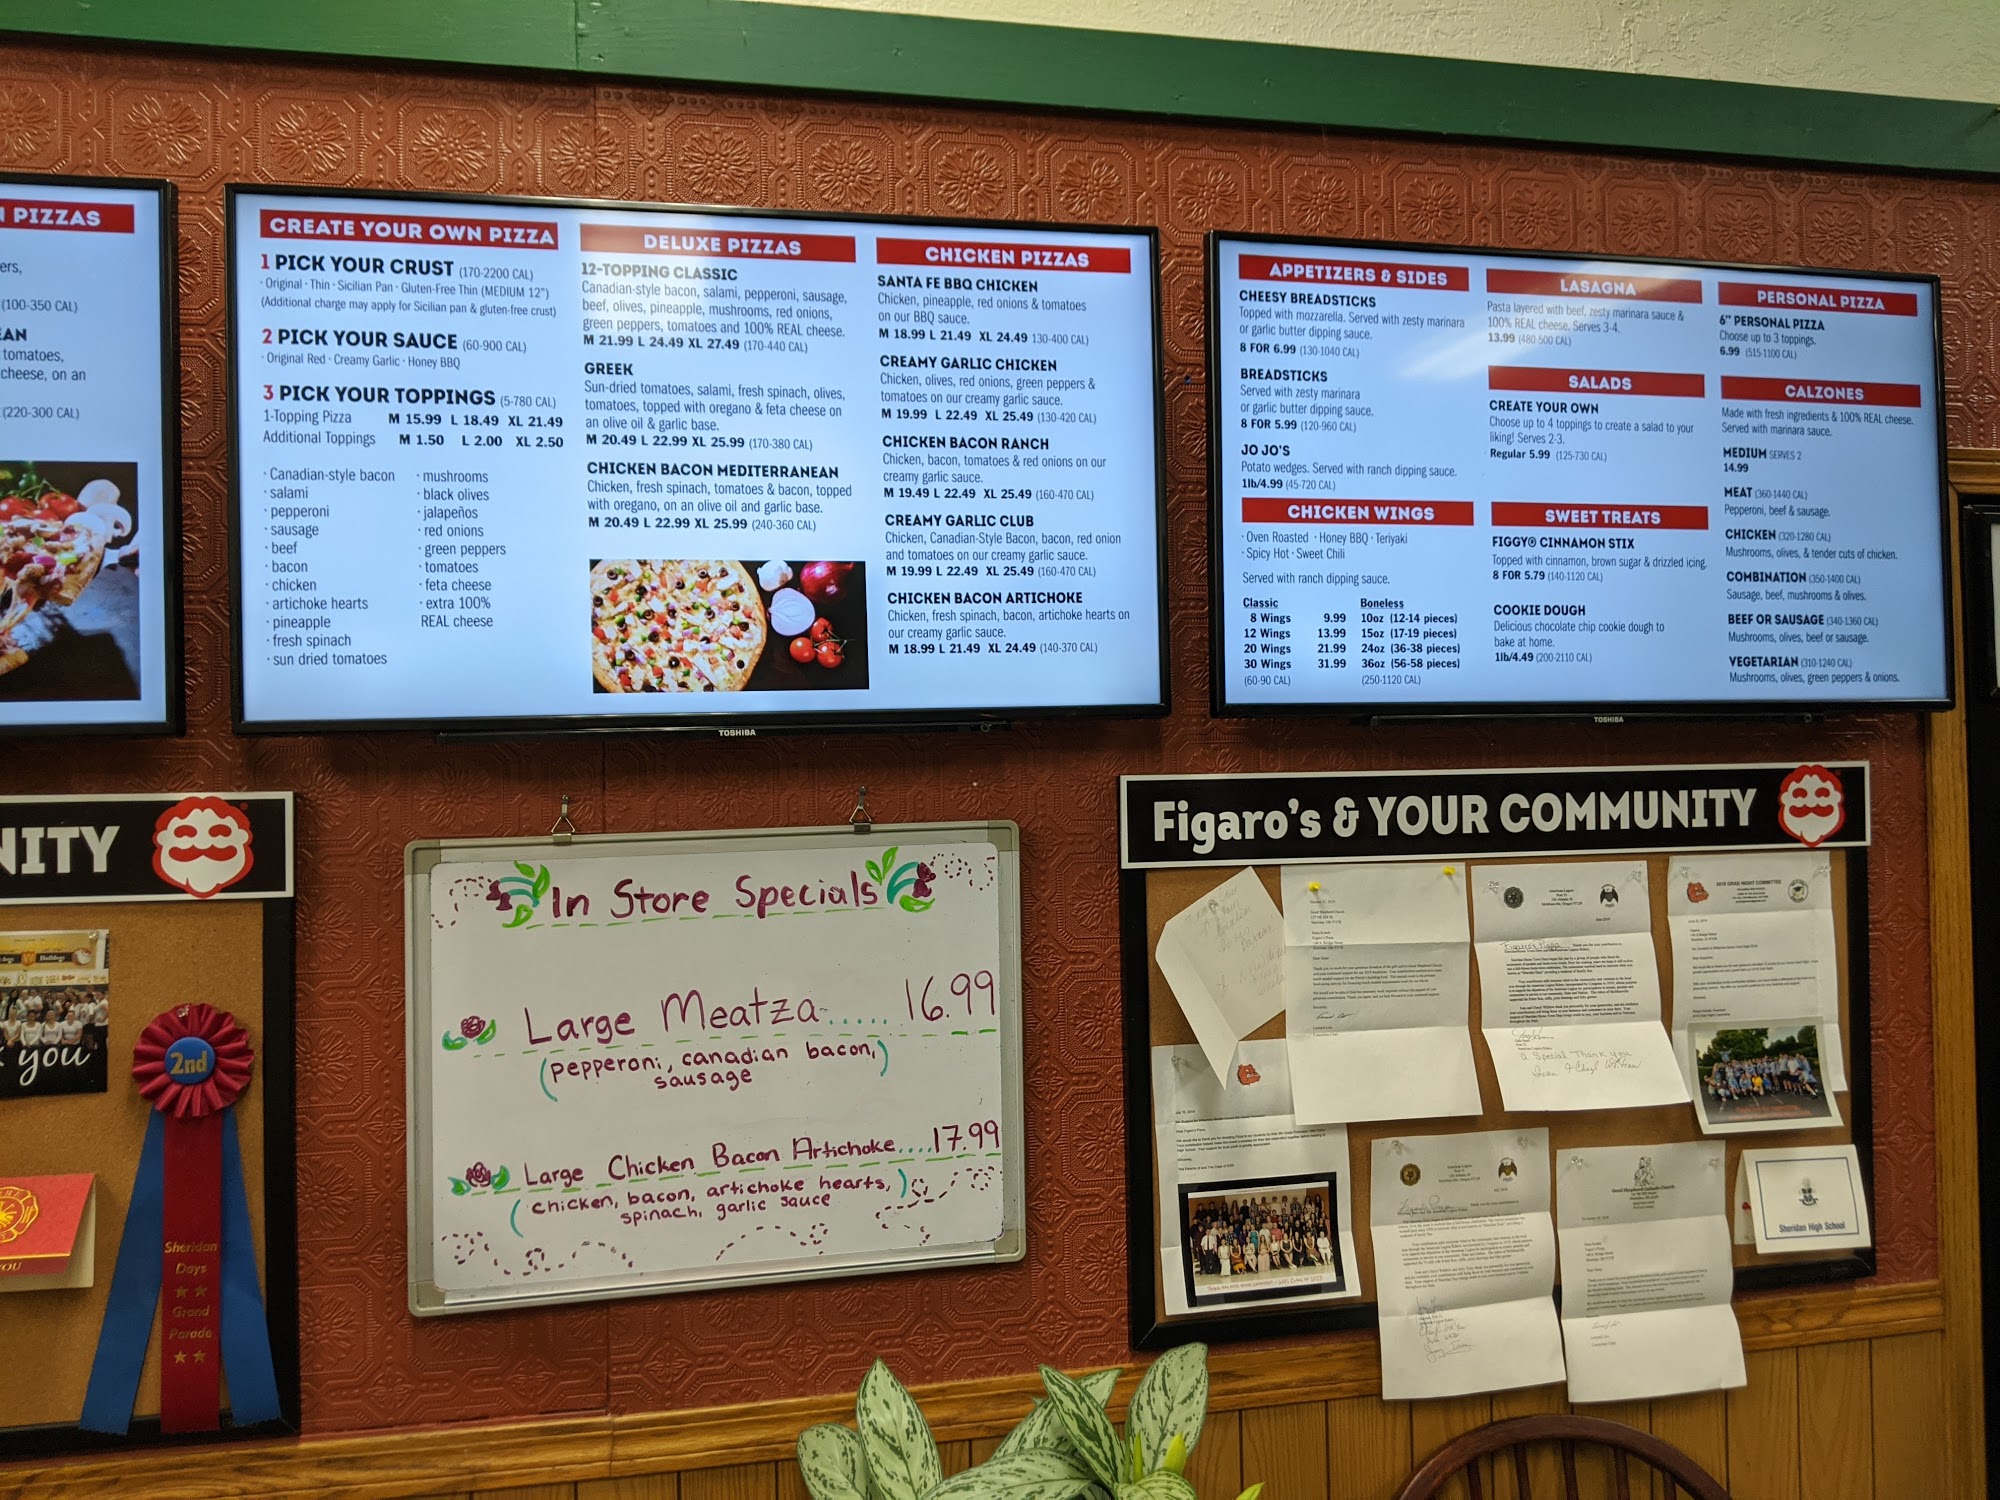 N PIZZAS
ers,
(100-350 CAL)
EAN
tomatoes,
cheese, on an
(220-300 CAL)
CREATE YOUR OWN PIZZA
1 PICK YOUR CRUST (170-2200 CAL)
· Original · Thin · Sicilian Pan · Gluten-Free Thin (MEDIUM 12")
(Additional charge may apply for Sicilian pan & gluten-free crust)
2 PICK YOUR SAUCE (60-900 CAL)
· Original Red · Creamy Garlic · Honey BBQ
3 PICK YOUR TOPPINGS (5-780 CAL)
1-Topping Pizza M 15.99 L 18.49 XL 21.49
Additional Toppings M 1.50 L 2.00 XL 2.50
· Canadian-style bacon
· salami
· pepperoni
· sausage
· beef
· bacon
· chicken
· artichoke hearts
· pineapple
· fresh spinach
· sun dried tomatoes
· mushrooms
· black olives
· jalapeños
· red onions
· green peppers
· tomatoes
· feta cheese
· extra 100%
REAL cheese
DELUXE PIZZAS
12-TOPPING CLASSIC
Canadian-style bacon, salami, pepperoni, sausage,
beef, olives, pineapple, mushrooms, red onions,
green peppers, tomatoes and 100% REAL cheese.
M 21.99 L 24.49 XL 27.49 (170-440 CAL)
GREEK
Sun-dried tomatoes, salami, fresh spinach, olives,
tomatoes, topped with oregano & feta cheese on
an olive oil & garlic base.
M 20.49 L 22.99 XL 25.99 (170-380 CAL)
CHICKEN BACON MEDITERRANEAN
Chicken, fresh spinach, tomatoes & bacon, topped
with oregano, on an olive oil and garlic base.
M 20.49 L 22.99 XL 25.99 (240-360 CAL)
CHICKEN PIZZAS
SANTA FE BBQ CHICKEN
Chicken, pineapple, red onions & tomatoes
on our BBQ sauce.
M 18.99 L 21.49 XL 24.49 130-400 CAL)
CREAMY GARLIC CHICKEN
Chicken, olives, red onions, green peppers &
tomatoes on our creamy garlic sauce.
M 19.99 L 22.49 XL 25.49 (130-420 CAL)
CHICKEN BACON RANCH
Chicken, bacon, tomatoes & red onions on our
creamy garlic sauce.
M 19.49 L 22.49 XL 25.49 (160-470 CAL)
CREAMY GARLIC CLUB
Chicken, Canadian-Style Bacon, bacon, red onion
and tomatoes on our creamy garlic sauce.
M 19.99 L 22.49 XL 25.49 (160-470 CAL)
CHICKEN BACON ARTICHOKE
Chicken, fresh spinach, bacon, artichoke hearts on
our creamy garlic sauce.
M 18.99 L 21.49 XL 24.49 (140-370 CAL)
TOSHIBA
APPETIZERS & SIDES
CHEESY BREADSTICKS
Topped with mozzarella. Served with zesty marinara
or garlic butter dipping sauce.
8 FOR 6.99 (130-1040 CAL)
BREADSTICKS
Served with zesty marinara
or garlic butter dipping sauce.
8 FOR 5.99 (120-960 CAL)
JO JO'S
Potato wedges. Served with ranch dipping sauce.
1lb/4.99 (45-720 CAL)
CHICKEN WINGS
· Oven Roasted · Honey BBQ · Teriyaki
· Spicy Hot · Sweet Chili
Served with ranch dipping sauce.
Classic Boneless
8 Wings 9.99 10oz (12-14 pieces)
12 Wings 13.99 15oz (17-19 pieces)
20 Wings 21.99 24oz (36-38 pieces)
30 Wings 31.99 36oz (56-58 pieces)
(60-90 CAL) (250-1120 CAL)
LASAGNA
Pasta layered with beef, zesty marinara sauce &
100% REAL cheese. Serves 3-4.
13.99 (480-500 CAL)
SALADS
CREATE YOUR OWN
Choose up to 4 toppings to create a salad to your
liking! Serves 2-3.
Regular 5.99 (125-730 CAL)
SWEET TREATS
FIGGY® CINNAMON STIX
Topped with cinnamon, brown sugar & drizzled icing.
8 FOR 5.79 (140-1120 CAL)
COOKIE DOUGH
Delicious chocolate chip cookie dough to
bake at home.
1lb/4.49 (200-2110 CAL)
PERSONAL PIZZA
6" PERSONAL PIZZA
Choose up to 3 toppings.
6.99 (515-1100 CAL)
CALZONES
Made with fresh ingredients & 100% REAL cheese.
Served with marinara sauce.
MEDIUM SERVES 2
14.99
MEAT (360-1440 CAL)
Pepperoni, beef & sausage.
CHICKEN (320-1280 CAL)
Mushrooms, olives, & tender cuts of chicken.
COMBINATION (350-1400 CAL)
Sausage, beef, mushrooms & olives.
BEEF OR SAUSAGE (340-1360 CAL)
Mushrooms, olives, beef or sausage.
VEGETARIAN (310-1240 CAL)
Mushrooms, olives, green peppers & onions.
TOSHIBA
NITY
you
2nd
Sheridan
Days
Grand
Parade
YOU
In Store Specials
Large Meatza..... 16.99
(pepperoni, canadian bacon,)
sausage
Large Chicken Bacon Artichoke....17.99
(chicken, bacon, artichoke hearts,)
spinach, garlic sauce
Figaro's & YOUR COMMUNITY
Figaro's Pizza
a Special Thank you
Sheridan High School